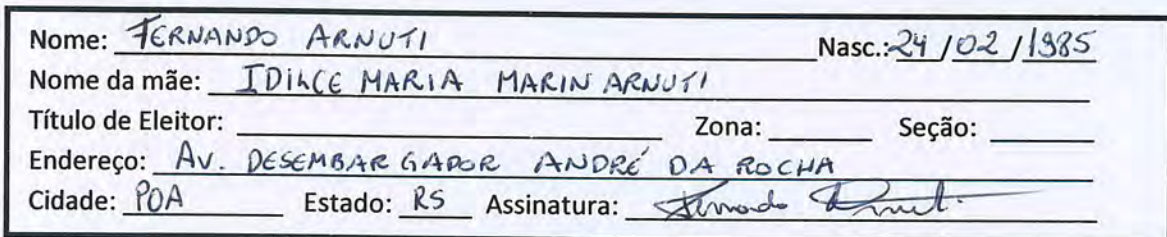 Nome: FERNANDO ARNUTI Nasc.: 24/02/1985
Nome da mãe: IDILCE MARIA MARIN ARNUTI
Título de Eleitor: Zona: Seção:
Endereço: AV. DESEMBARGADOR ANDRÉ DA ROCHA
Cidade: POA Estado: RS Assinatura: Fernando Arnuti